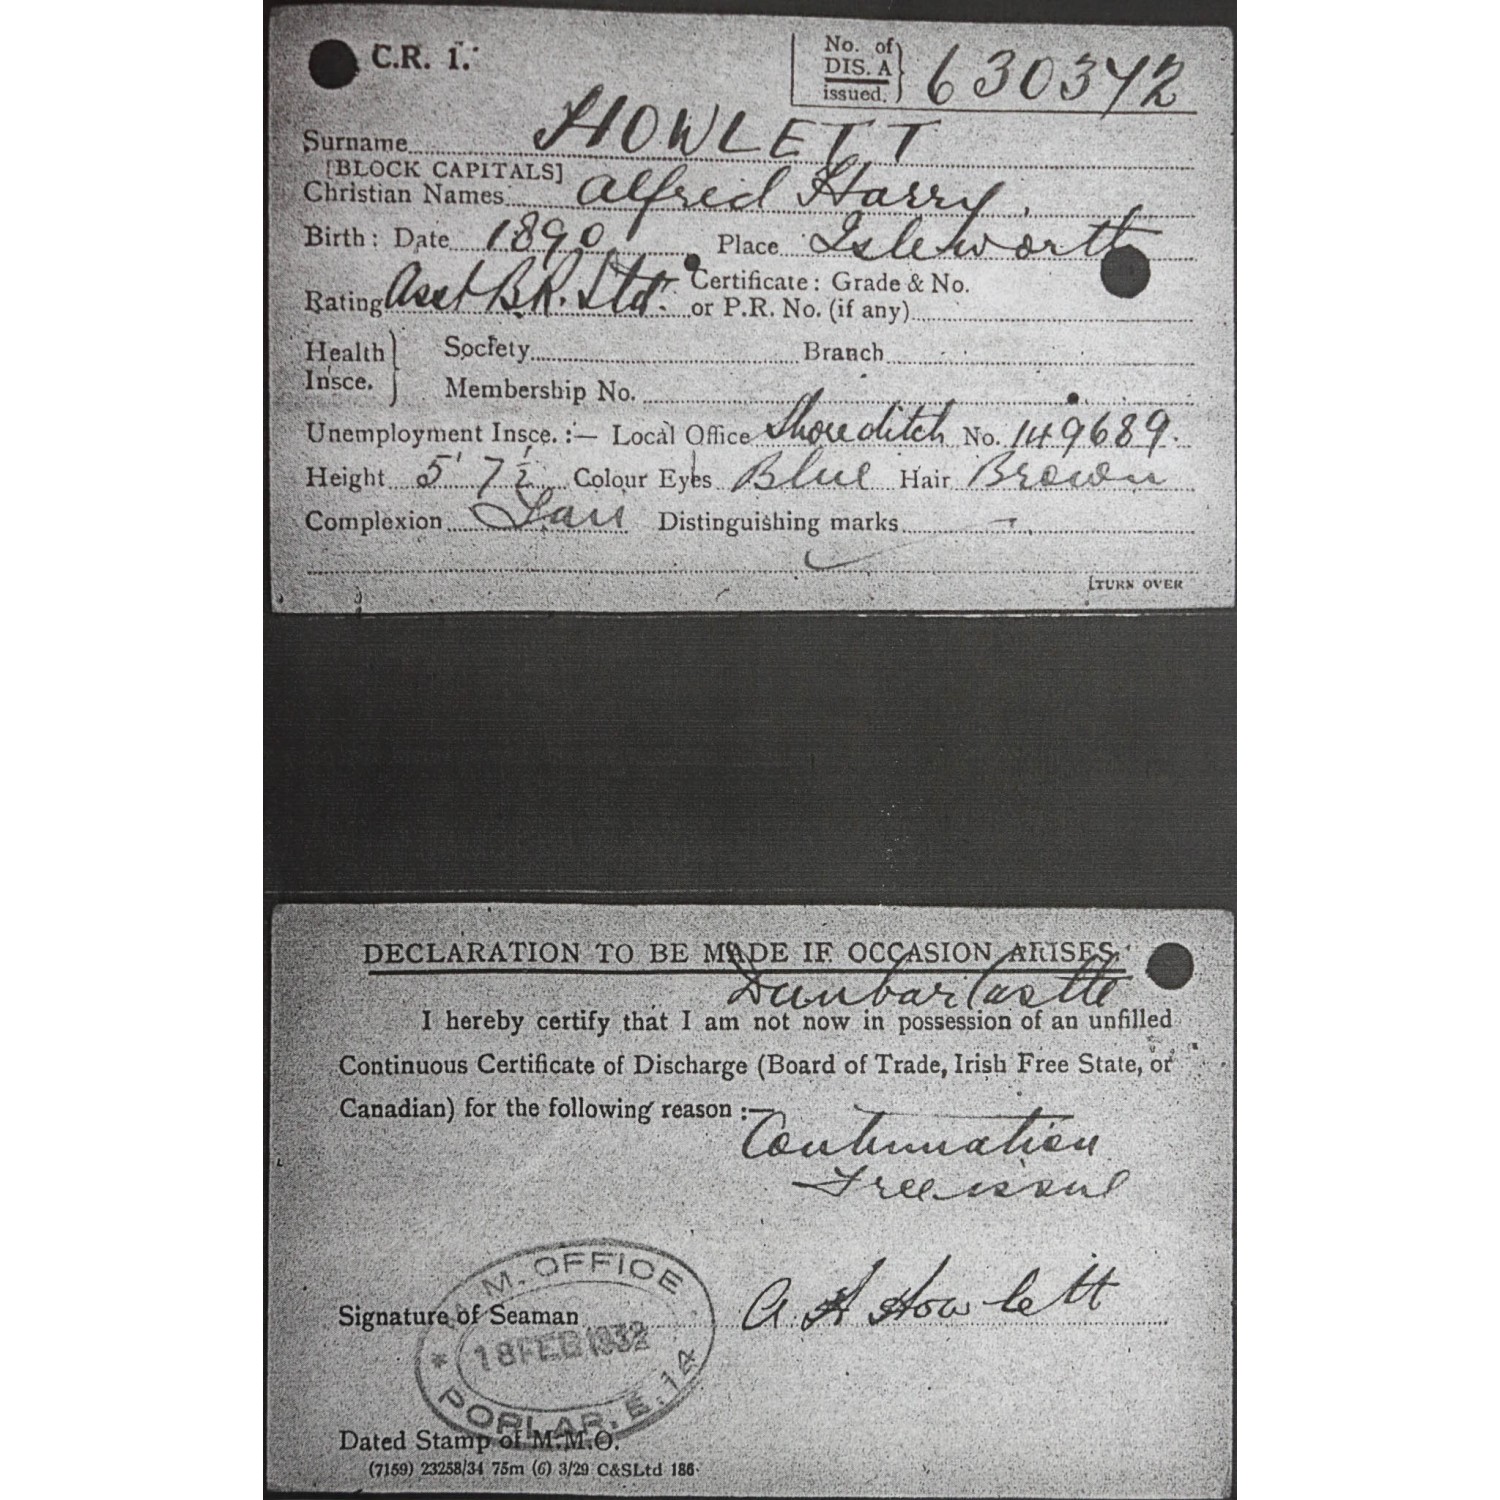 C.R. 1.
No. of DIS. A issued. 630372
Surname HOWLETT
[BLOCK CAPITALS]
Christian Names Alfred Harry
Birth: Date 1890 Place Isleworth
Rating Asst B.R. Std. Certificate: Grade & No.
or P.R. No. (if any)
Health Insce. Society Branch
Membership No.
Unemployment Insce. :— Local Office Shoreditch No. 149689.
Height 5' 7½ Colour Eyes Blue Hair Brown
Complexion Fair Distinguishing marks —
[TURN OVER
DECLARATION TO BE MADE IF OCCASION ARISES.
Dunbar Castle
I hereby certify that I am not now in possession of an unfilled
Continuous Certificate of Discharge (Board of Trade, Irish Free State, or
Canadian) for the following reason :—
Continuation
Free issue
M. OFFICE
Signature of Seaman A H Howlett
* 18 FEB 1932
POPLAR. E. 14
Dated Stamp of M.M.O.
(7159) 23258/34 75m (6) 3/29 C&SLtd 186